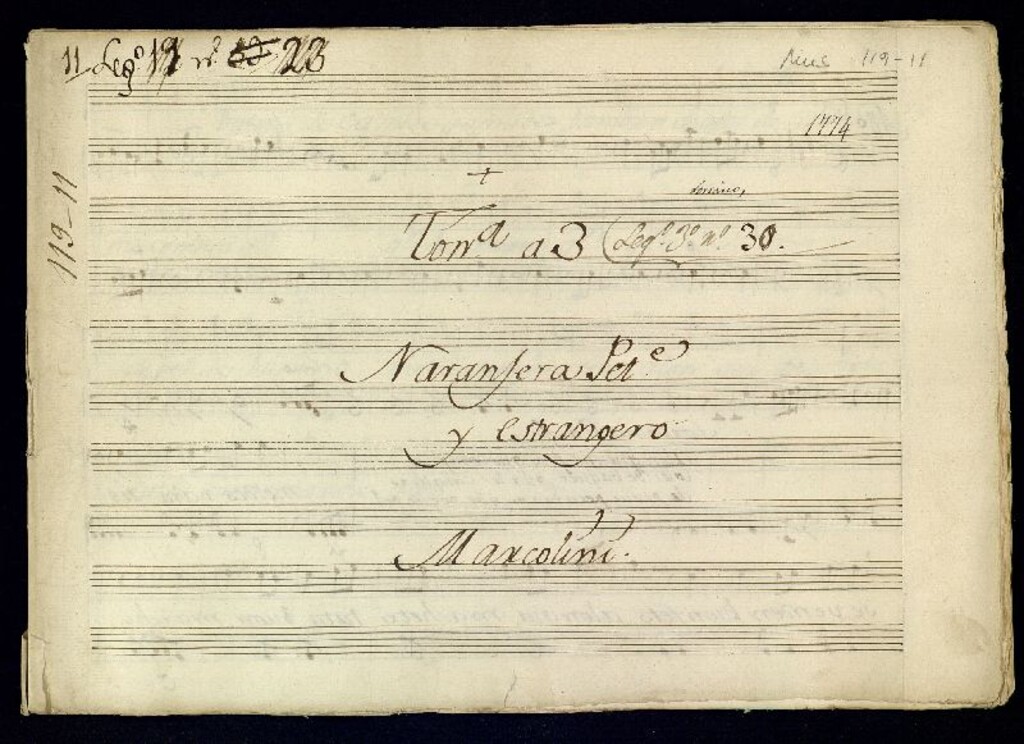 11 Leg.º 19 nº 23
Mus 119-11
1774
119-11
+
Ton.ª a 3 (Leg.º 3.º nº 30.
Naranjera Pet.e
y estrangero
Marcolini.